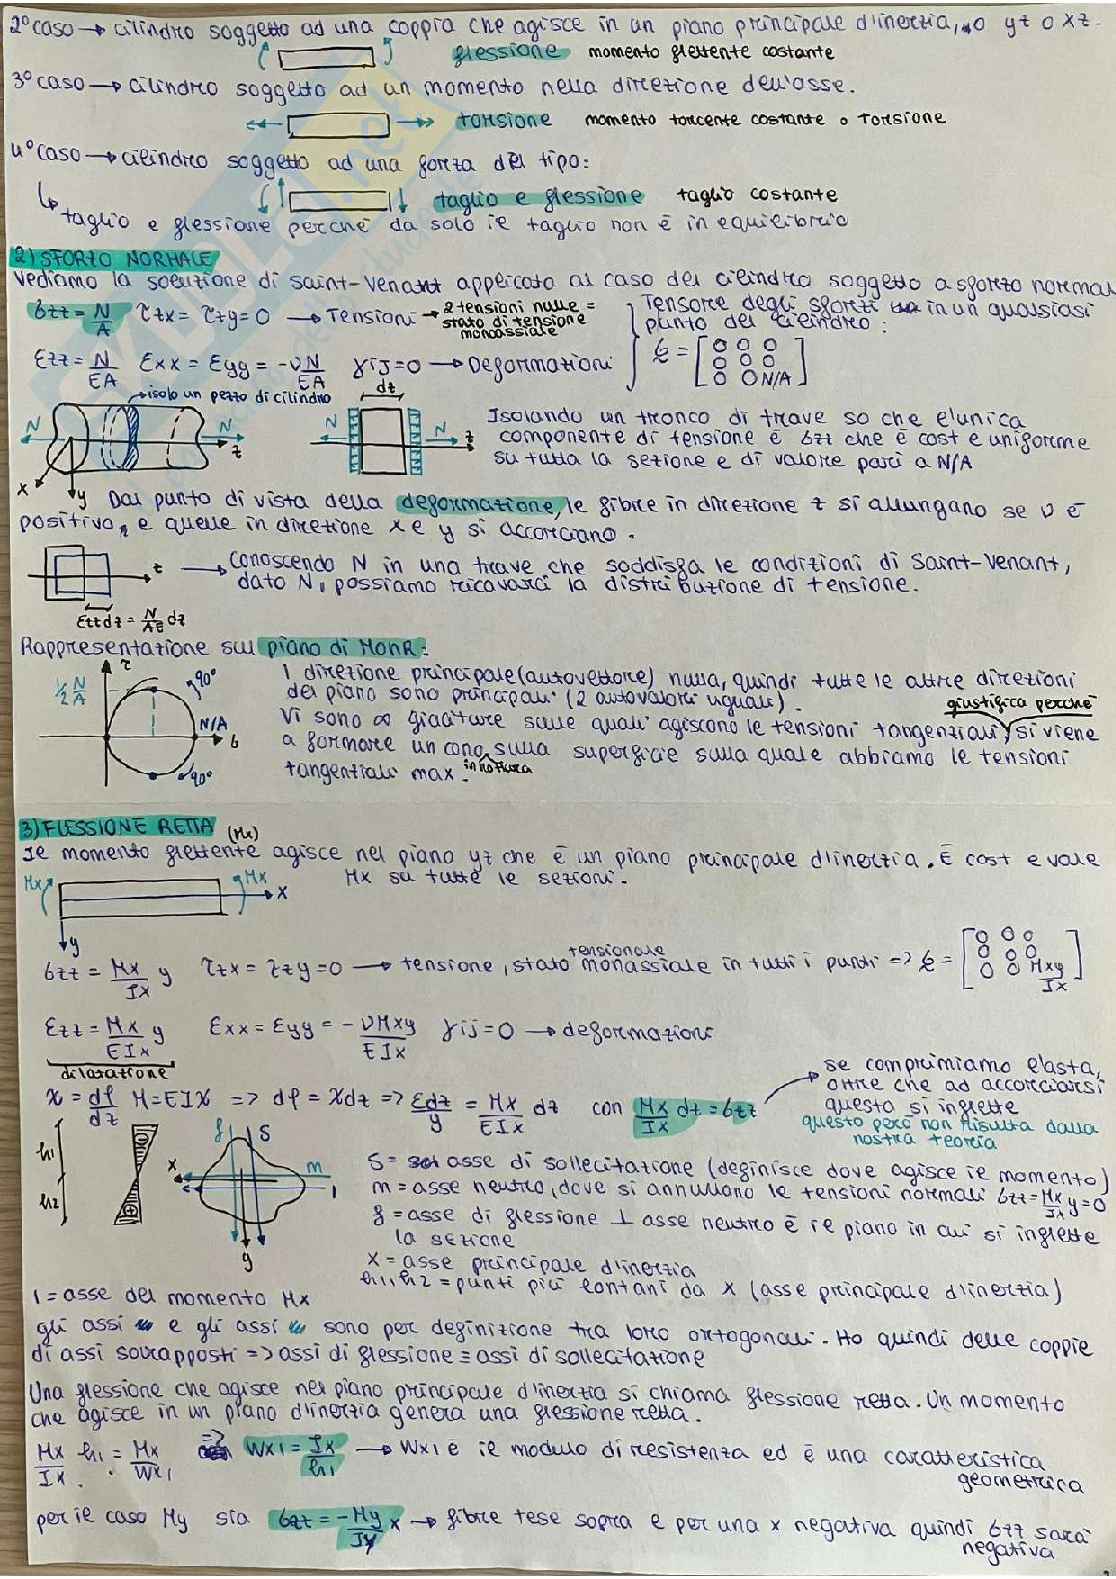 2° caso → cilindro soggetto ad una coppia che agisce in un piano principale d'inerzia, o yz o xz.
flessione momento flettente costante
3° caso → cilindro soggetto ad un momento nella direzione dell'asse.
torsione momento torcente costante o torsione
4° caso → cilindro soggetto ad una forza del tipo:
taglio e flessione taglio costante
↳ taglio e flessione perché da solo il taglio non è in equilibrio
2) SFORZO NORMALE
Vediamo la soluzione di Saint-Venant applicato al caso del cilindro soggetto a sforzo normal
σzz = N/A τzx = τzy = 0 → Tensioni → 2 tensioni nulle = stato di tensione monoassiale
Tensore degli sforzi in un qualsiasi punto del cilindro:
σ = [0 0 0
0 0 0
0 0 N/A]
εzz = N/EA εxx = εyy = -νN/EA γij = 0 → Deformazioni
isolo un pezzo di cilindro
N N z x y
dz N N z
Isolando un tronco di trave so che l'unica
componente di tensione è σzz che è cost e uniforme
su tutta la sezione e di valore pari a N/A
Dal punto di vista della deformazione, le fibre in direzione z si allungano se ν è
positivo, e quelle in direzione x e y si accorciano.
z → conoscendo N in una trave che soddisfa le condizioni di Saint-Venant,
dato N, possiamo ricavarci la distribuzione di tensione.
εzz dz = N/AE dz
Rappresentazione sul piano di MOHR:
τ 1/2 N/A 90° N/A σ 90°
1 direzione principale (autovettore) nulla, quindi tutte le altre direzioni
del piano sono principali (2 autovalori uguali).
giustifica perché
Vi sono ∞ giaciture sulle quali agiscono le tensioni tangenziali, si viene
a formare un cono, sulla superficie sulla quale abbiamo le tensioni
tangenziali max. in rottura
3) FLESSIONE RETTA (Mx)
Il momento flettente agisce nel piano yz che è un piano principale d'inerzia. È cost e vale
Mx su tutte le sezioni.
Mx Mx x
y
σzz = Mx/Ix y τzx = τzy = 0 → tensione, stato tensionale monoassiale in tutti i punti => σ = [0 0 0
0 0 0
0 0 Mxy/Ix]
εzz = Mx/EIx y εxx = εyy = -νMxy/EIx γij = 0 → deformazioni
dilatazione
χ = dφ/dz M = EIχ => dφ = χdz => εdz/y = Mx/EIx dz con Mx/Ix dz = σzz
se comprimiamo l'asta,
oltre che ad accorciarsi
questo si inflette
questo però non risulta dalla
nostra teoria
h1 h2 f s x n 1 y
S = asse di sollecitazione (definisce dove agisce il momento)
n = asse neutro, dove si annullano le tensioni normali σzz = Mx/Ix y = 0
f = asse di flessione ⊥ asse neutro è il piano in cui si inflette
la sezione
X = asse principale d'inerzia
h1, h2 = punti più lontani da x (asse principale d'inerzia)
1 = asse del momento Mx
gli assi e gli assi sono per definizione tra loro ortogonali. Ho quindi delle coppie
di assi sovrapposti => assi di flessione ≡ assi di sollecitazione
Una flessione che agisce nel piano principale d'inerzia si chiama flessione retta. Un momento
che agisce in un piano d'inerzia genera una flessione retta.
Mx/Ix h1 = Mx/Wx1 => Wx1 = Ix/h1 → Wx1 è il modulo di resistenza ed è una caratteristica
geometrica
per il caso My sia σzz = -My/Iy x → fibre tese sopra e per una x negativa quindi σzz sarà
negativa